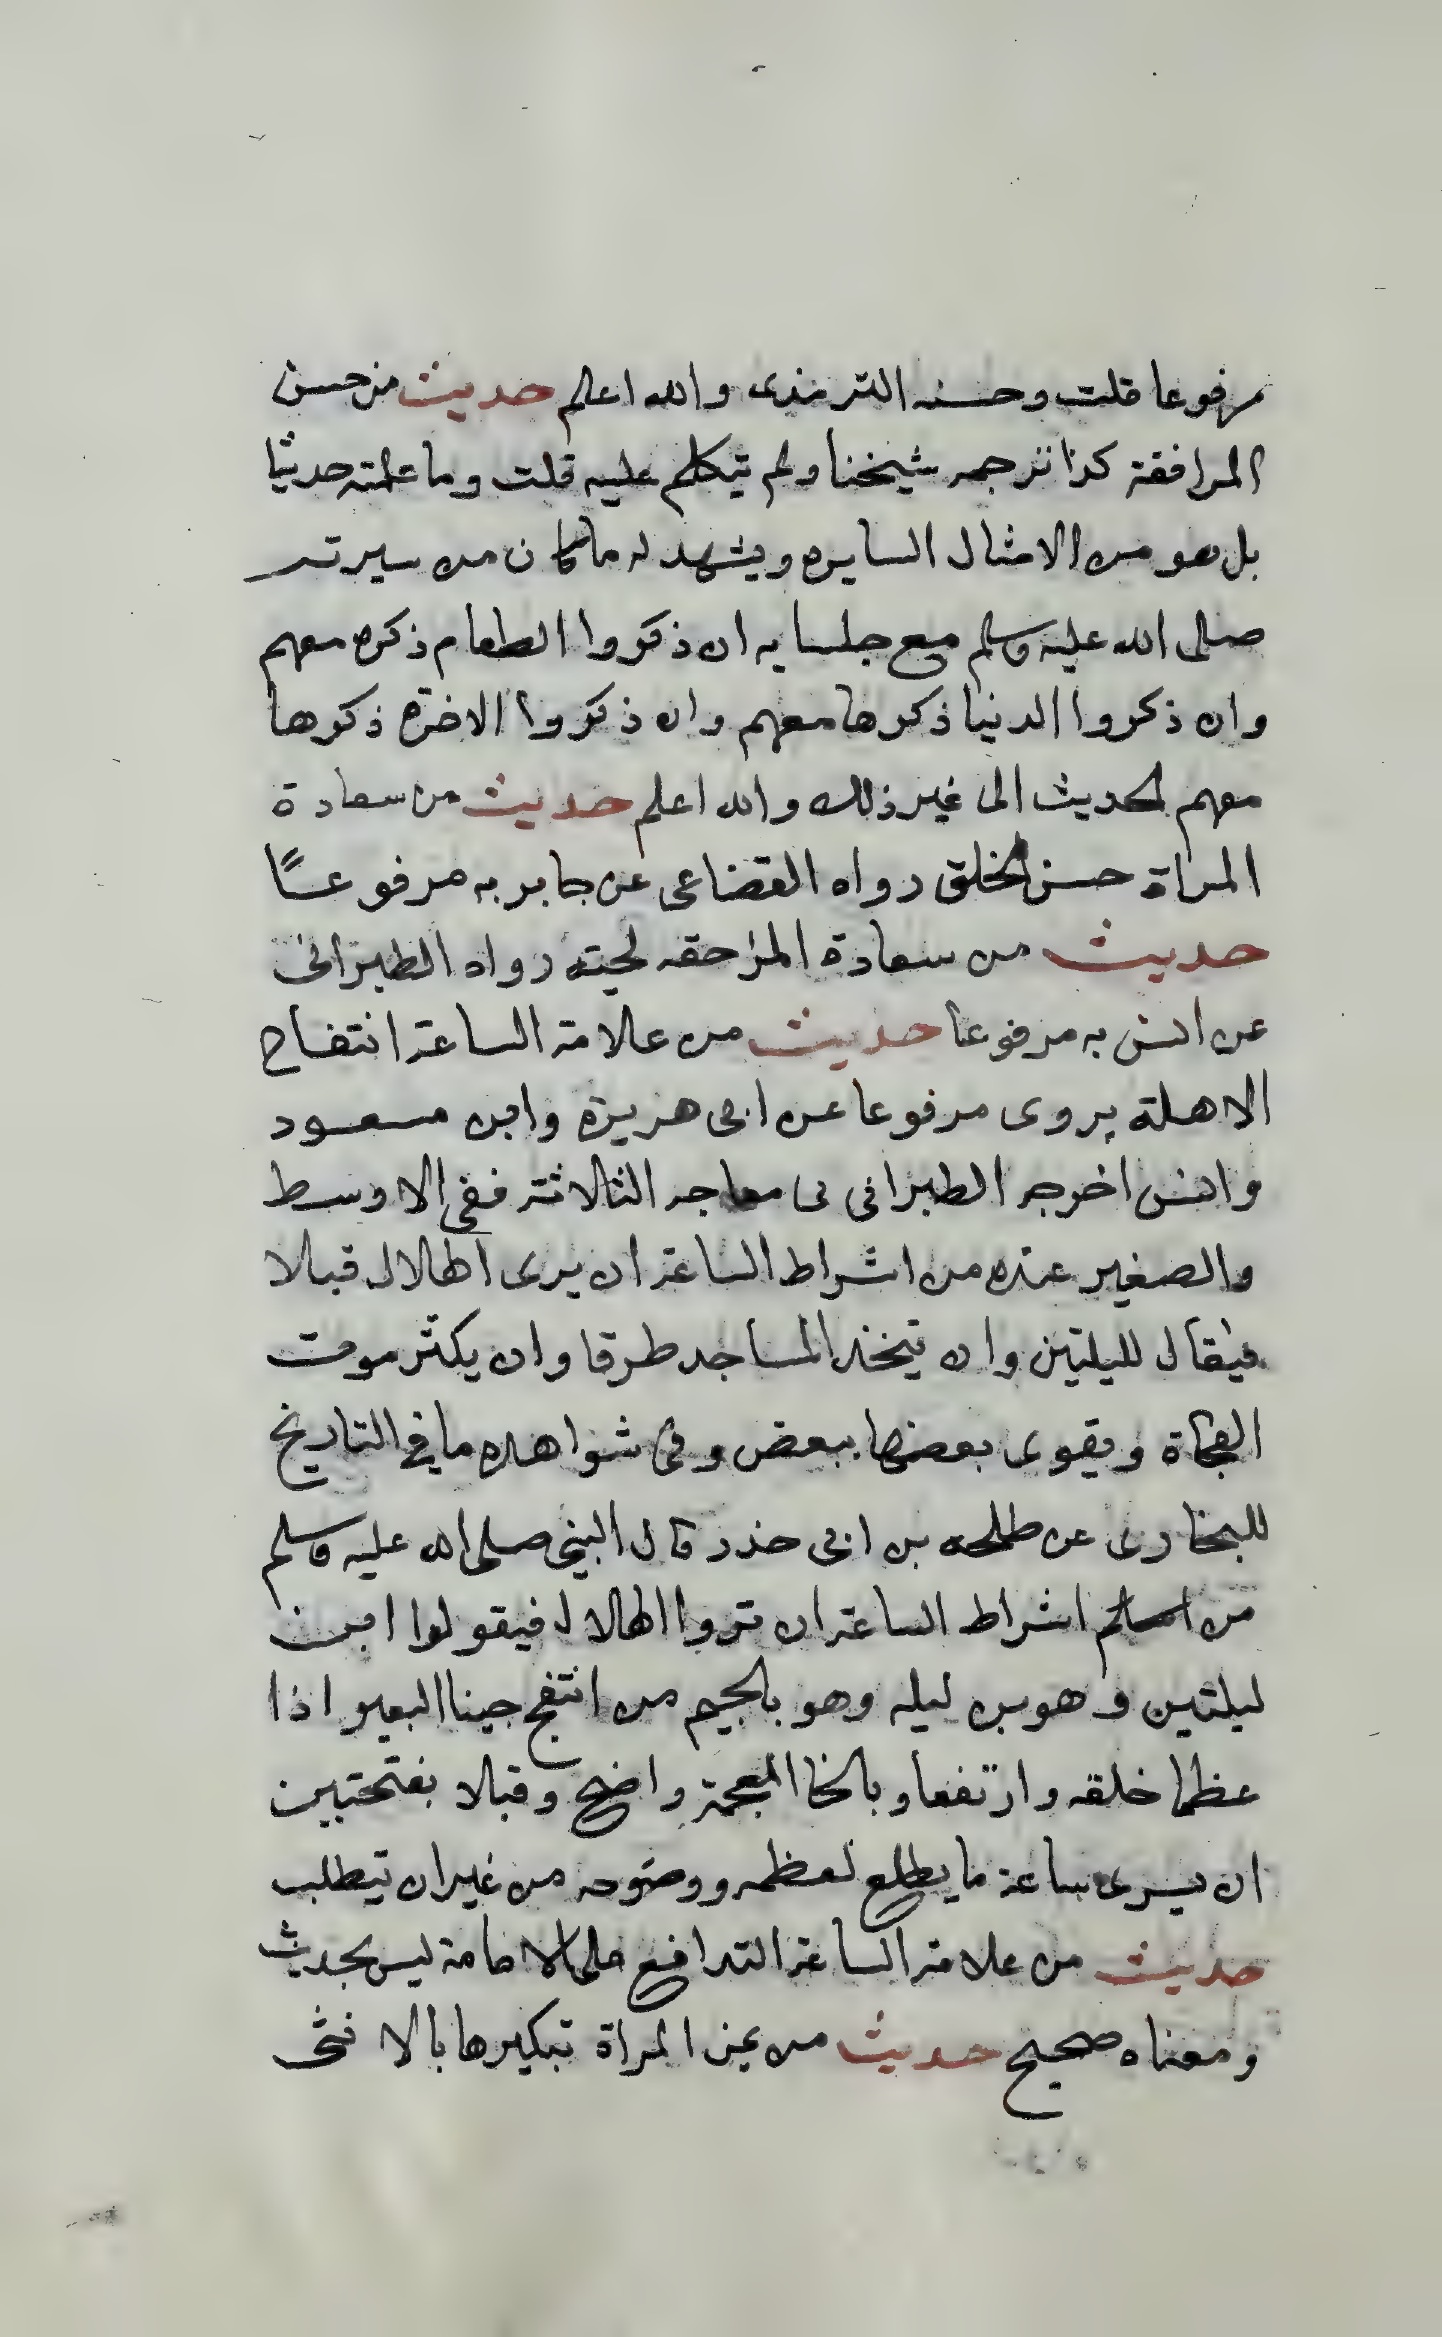 مرفوعا قلت وحسنه الترمذى والله اعلم حديث من حسن
المرافقة كذا ترجمه شيخنا ولم يتكلم عليه قلت وما علمته حديثا
بل هو من الامثال السايره ويشهد له ما كان من سيرته
صلى الله عليه وسلم مع جلسايه ان ذكروا الطعام ذكره معهم
وان ذكروا الدنيا ذكرها معهم وان ذكروا الاخرة ذكرها
معهم لحديث الى غير ذلك والله اعلم حديث من سعادة
المراة حسن الخلق رواه القضاعى عن جابر به مرفوعًا
حديث من سعادة المرء خفه لحيته رواه الطبرانى
عن انس به مرفوعا حديث من علامة الساعة انتفاح
الاهلة يروى مرفوعا عن ابى هريرة وابن مسعود
وانس اخرجه الطبرانى فى معاجه الثلاثة ففى الاوسط
والصغير عنه من اشراط الساعة ان يرى الهلال قبلا
فيقال لليلتين وان يتخذ المساجد طرقا وان يكثر موت
الفجاة ويقوى بعضها ببعض وفى شواهده ما فى التاريخ
للبخارى عن طلحه بن ابى حذر قال النبى صلى الله عليه وسلم
من اشراط الساعة ان تروا الهلال فيقولوا ابن
ليلتين وهو بن ليله وهو بالجيم من انتفج جبنا البعير اذا
عظما خلقه وارتفعا وبالخا المعجمة واضح وقبلا بفتحتين
ان يرى ساعة ما يطلع لعظمه ووضوحه من غير ان يتطلب
حديث من علامة الساعة التدافع على الامامة ليس بحديث
ومعناه صحيح حديث من يمن المراة تبكيرها بالانثى